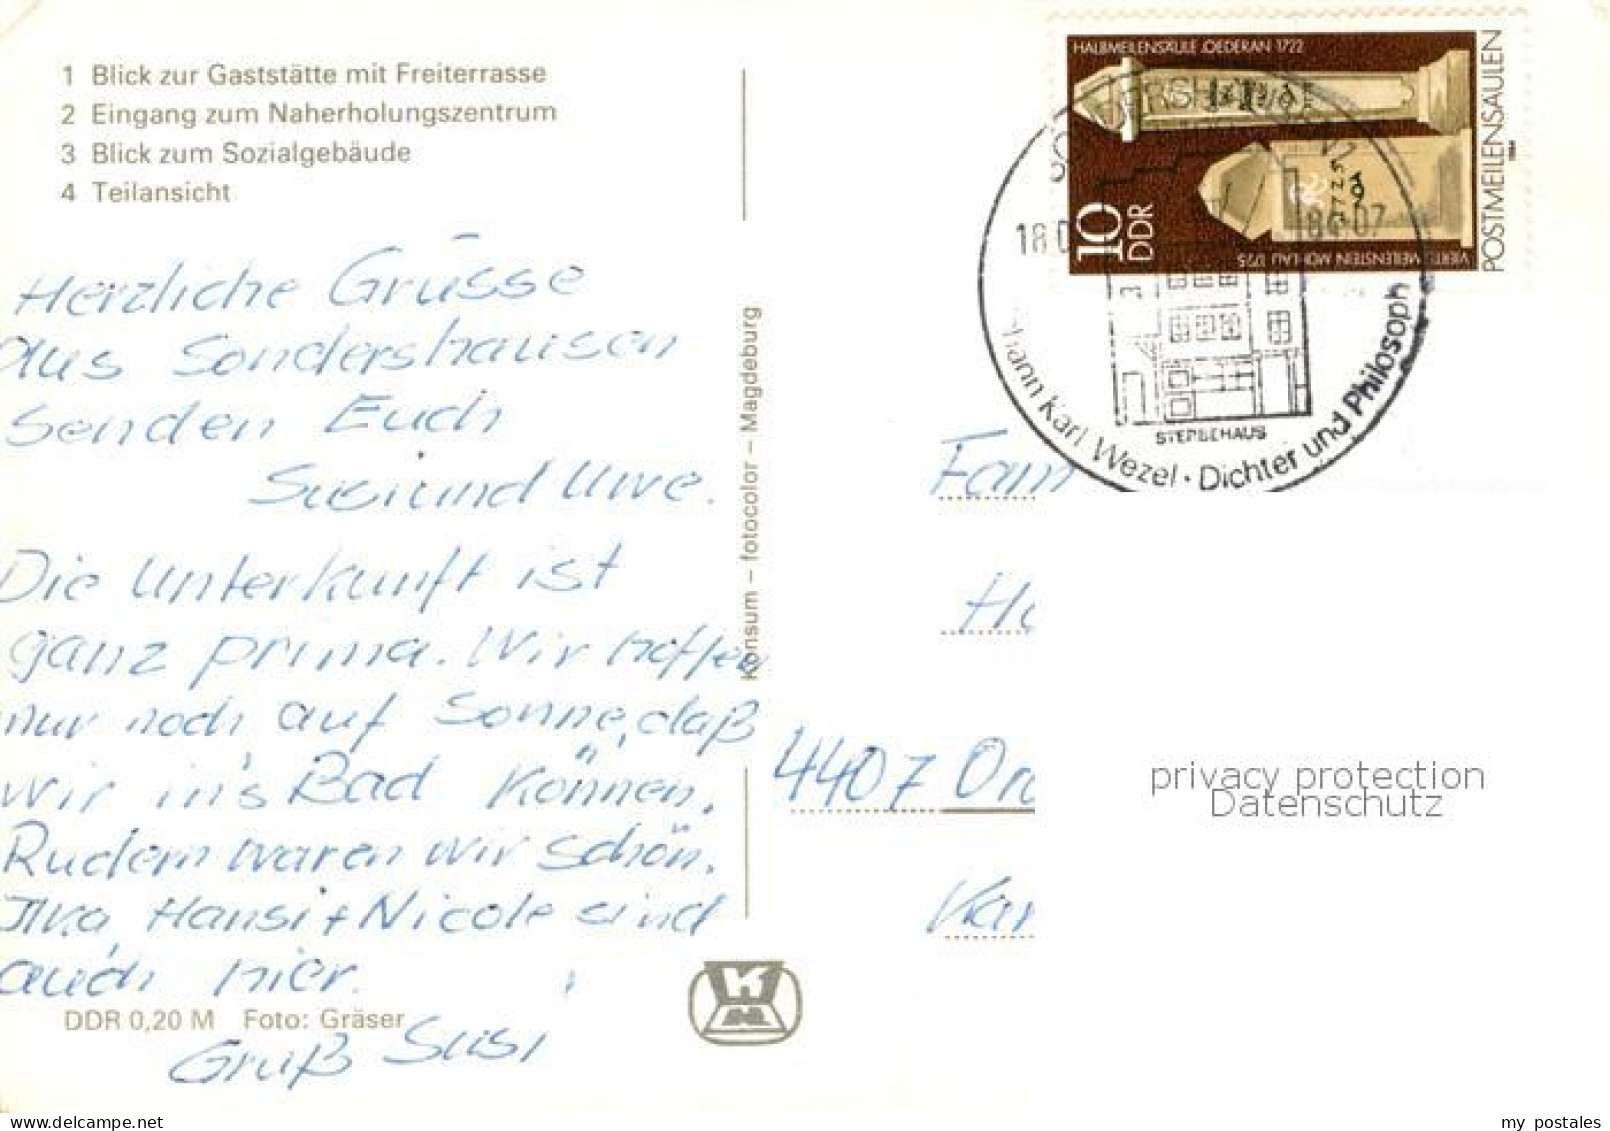 1 Blick zur Gaststätte mit Freiterrasse
2 Eingang zum Naherholungszentrum
3 Blick zum Sozialgebäude
4 Teilansicht
Herzliche Grüsse
aus Sondershausen
senden Euch
Susi und Uwe.
Die Unterkunft ist
ganz prima. Wir hoffen
nur noch auf Sonne, daß
wir in's Bad können.
Rudern waren wir schon.
Hansi + Nicole sind
auch hier.
DDR 0,20 M Foto: Gräser
Gruß Susi
Konsum – fotocolor – Magdeburg
HALBMEILENSÄULE OEDERAN 1722
POSTMEILENSÄULEN
10
DDR
1984
18
-07
STERBEHAUS
hann Karl Wezel · Dichter und Philosoph
Fam
4407
Kar
privacy protection
Datenschutz
my postales